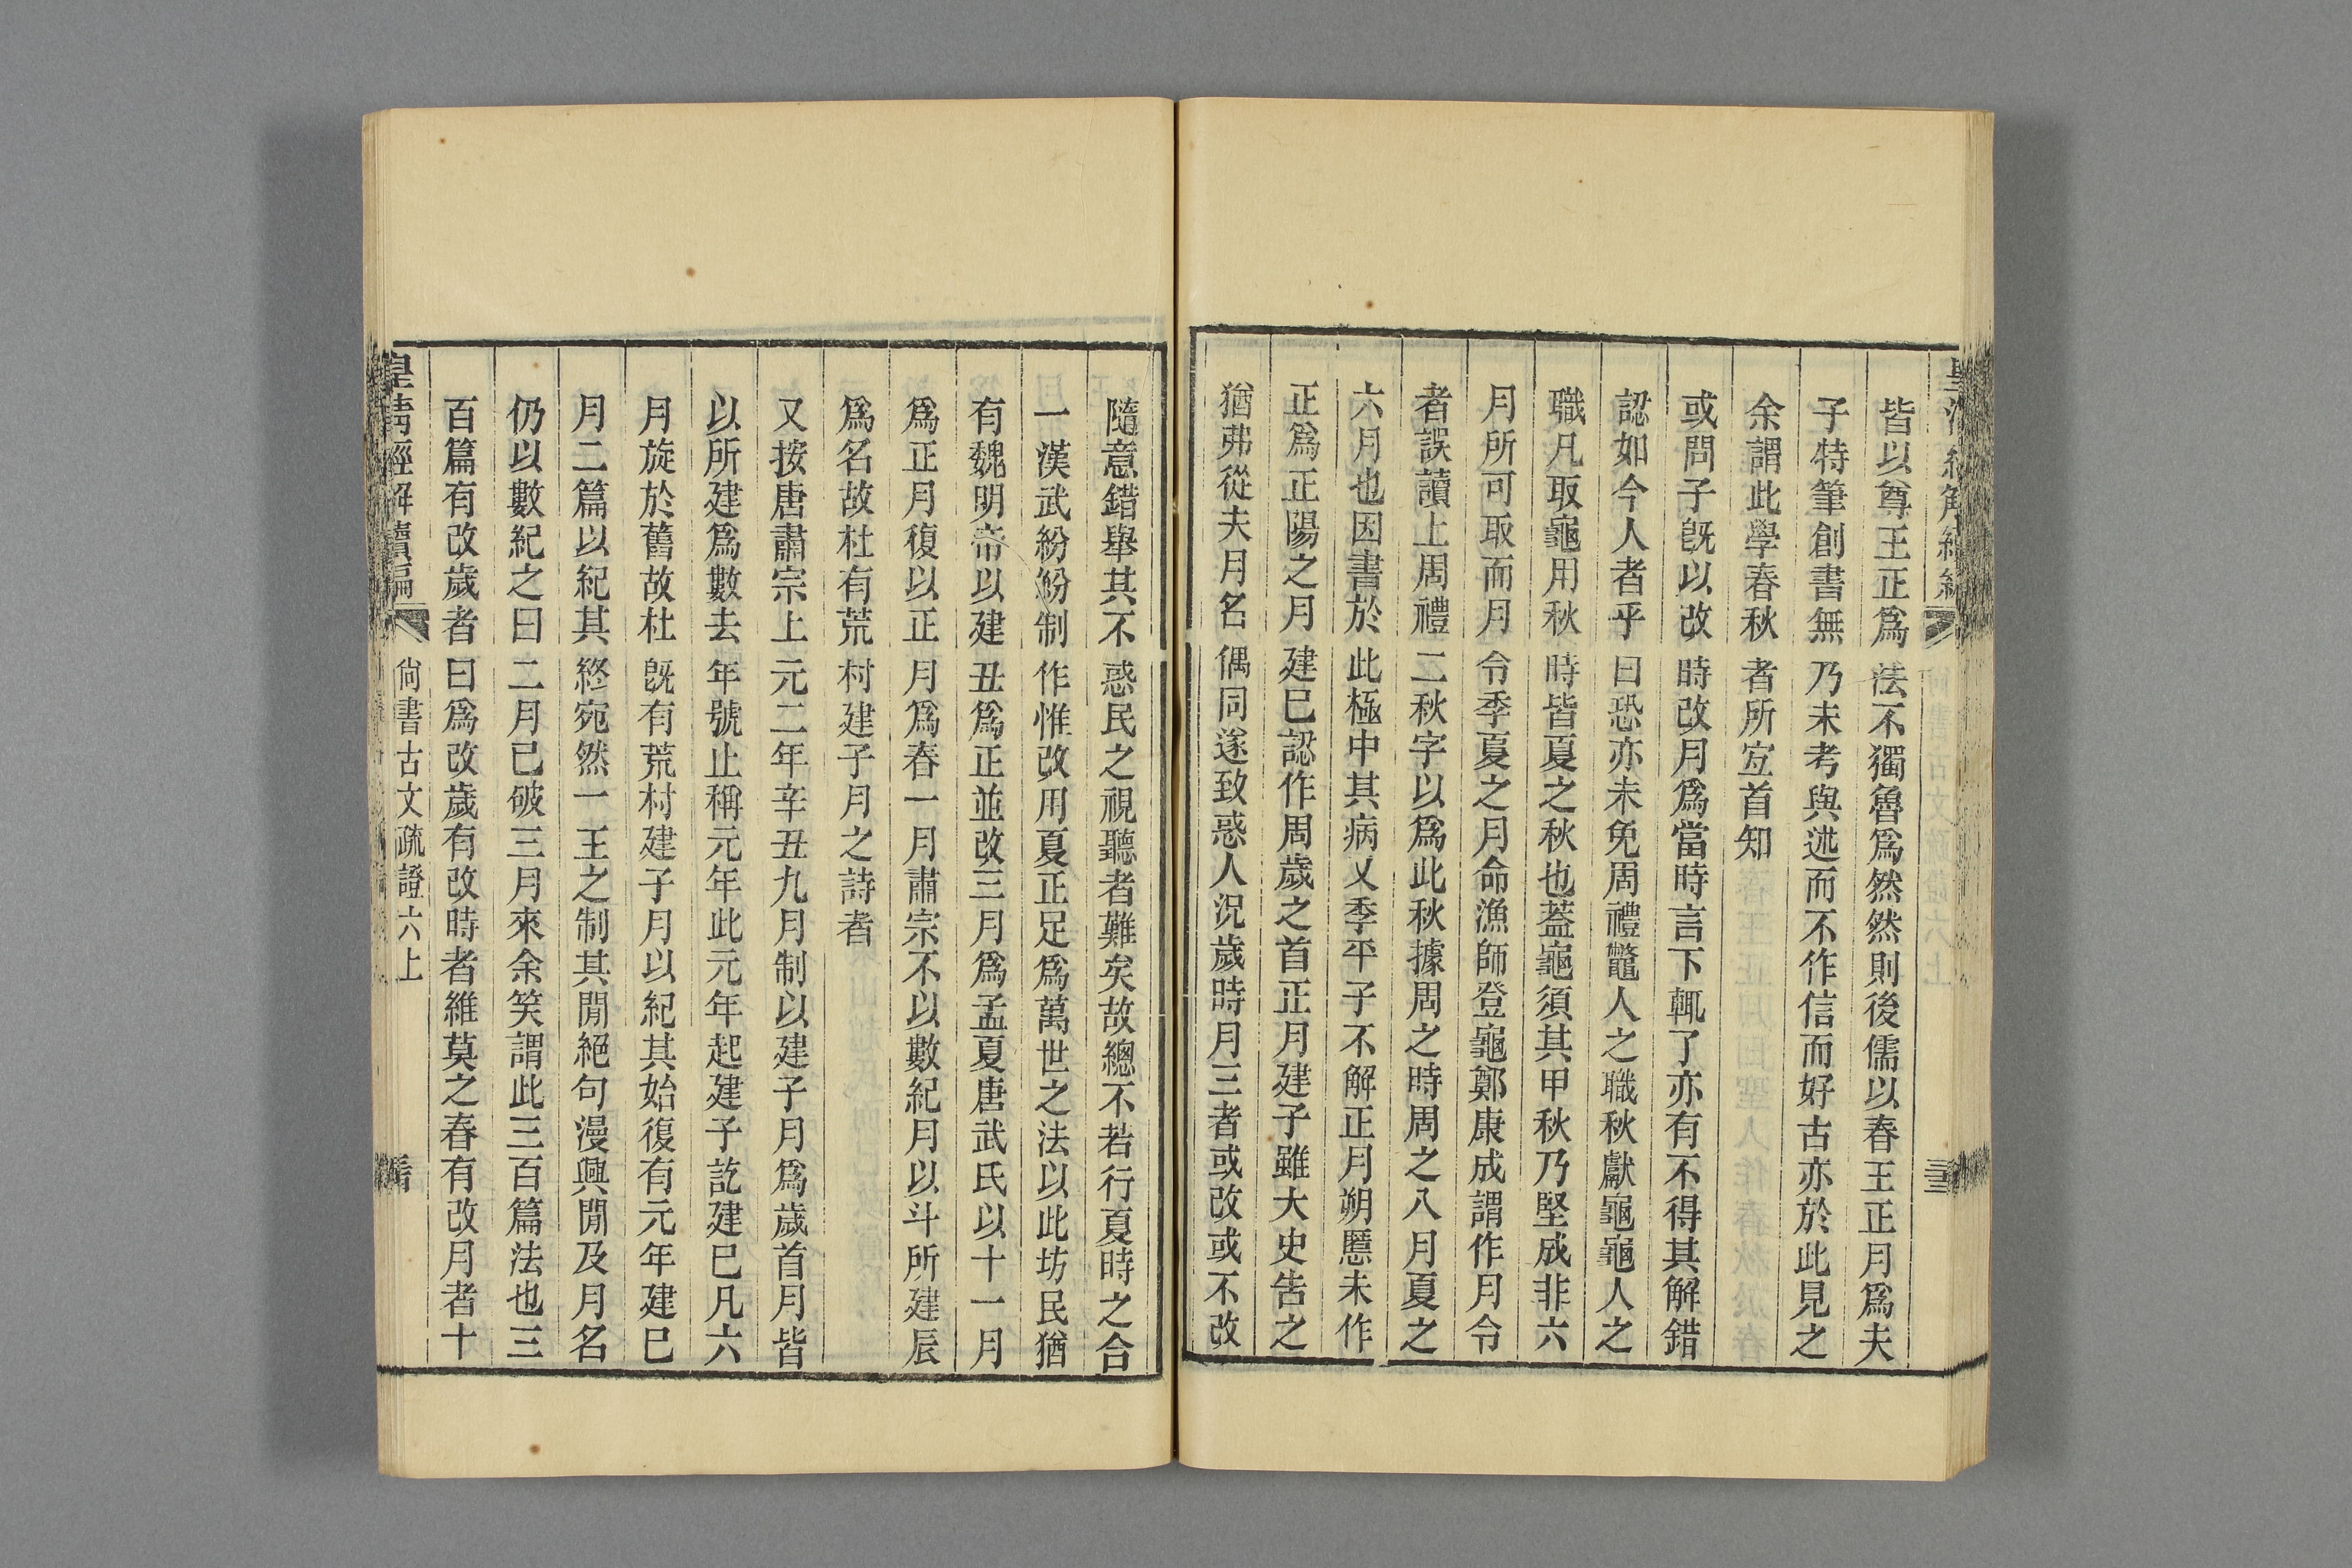 皆以尊王正爲法不獨魯爲然然則後儒以春王正月爲夫
子特筆創書無乃未考與述而不作信而好古亦於此見之
余謂此學春秋者所宐首知
或問子旣以改時改月爲當時言下輒了亦有不得其解錯
認如今人者乎曰恐亦未免周禮鼈人之職秋獻龜龜人之
職凡取龜用秋時皆夏之秋也蓋龜須其甲秋乃堅成非六
月所可取而月令季夏之月命漁師登龜鄭康成謂作月令
者誤讀上周禮二秋字以爲此秋據周之時周之八月夏之
六月也因書於此極中其病又季平子不解正月朔慝未作
正爲正陽之月建巳認作周歲之首正月建子雖大史告之
猶弗從夫月名偶同遂致惑人況歲時月三者或改或不改
隨意錯舉其不惑民之視聽者難矣故總不若行夏時之合
一漢武紛紛制作惟改用夏正足爲萬世之法以此坊民猶
有魏明帝以建丑爲正並改三月爲孟夏唐武氏以十一月
爲正月復以正月爲春一月肅宗不以數紀月以斗所建辰
爲名故杜有荒村建子月之詩者
又按唐肅宗上元二年辛丑九月制以建子月爲歲首月皆
以所建爲數去年號止稱元年此元年起建子訖建巳凡六
月旋於舊故杜旣有荒村建子月以紀其始復有元年建巳
月二篇以紀其終宛然一王之制其閒絕句漫興閒及月名
仍以數紀之曰二月已破三月來余笑謂此三百篇法也三
百篇有改歲者曰爲改歲有改時者維莫之春有改月者十
皇淸經解續編
尙書古文疏證六上